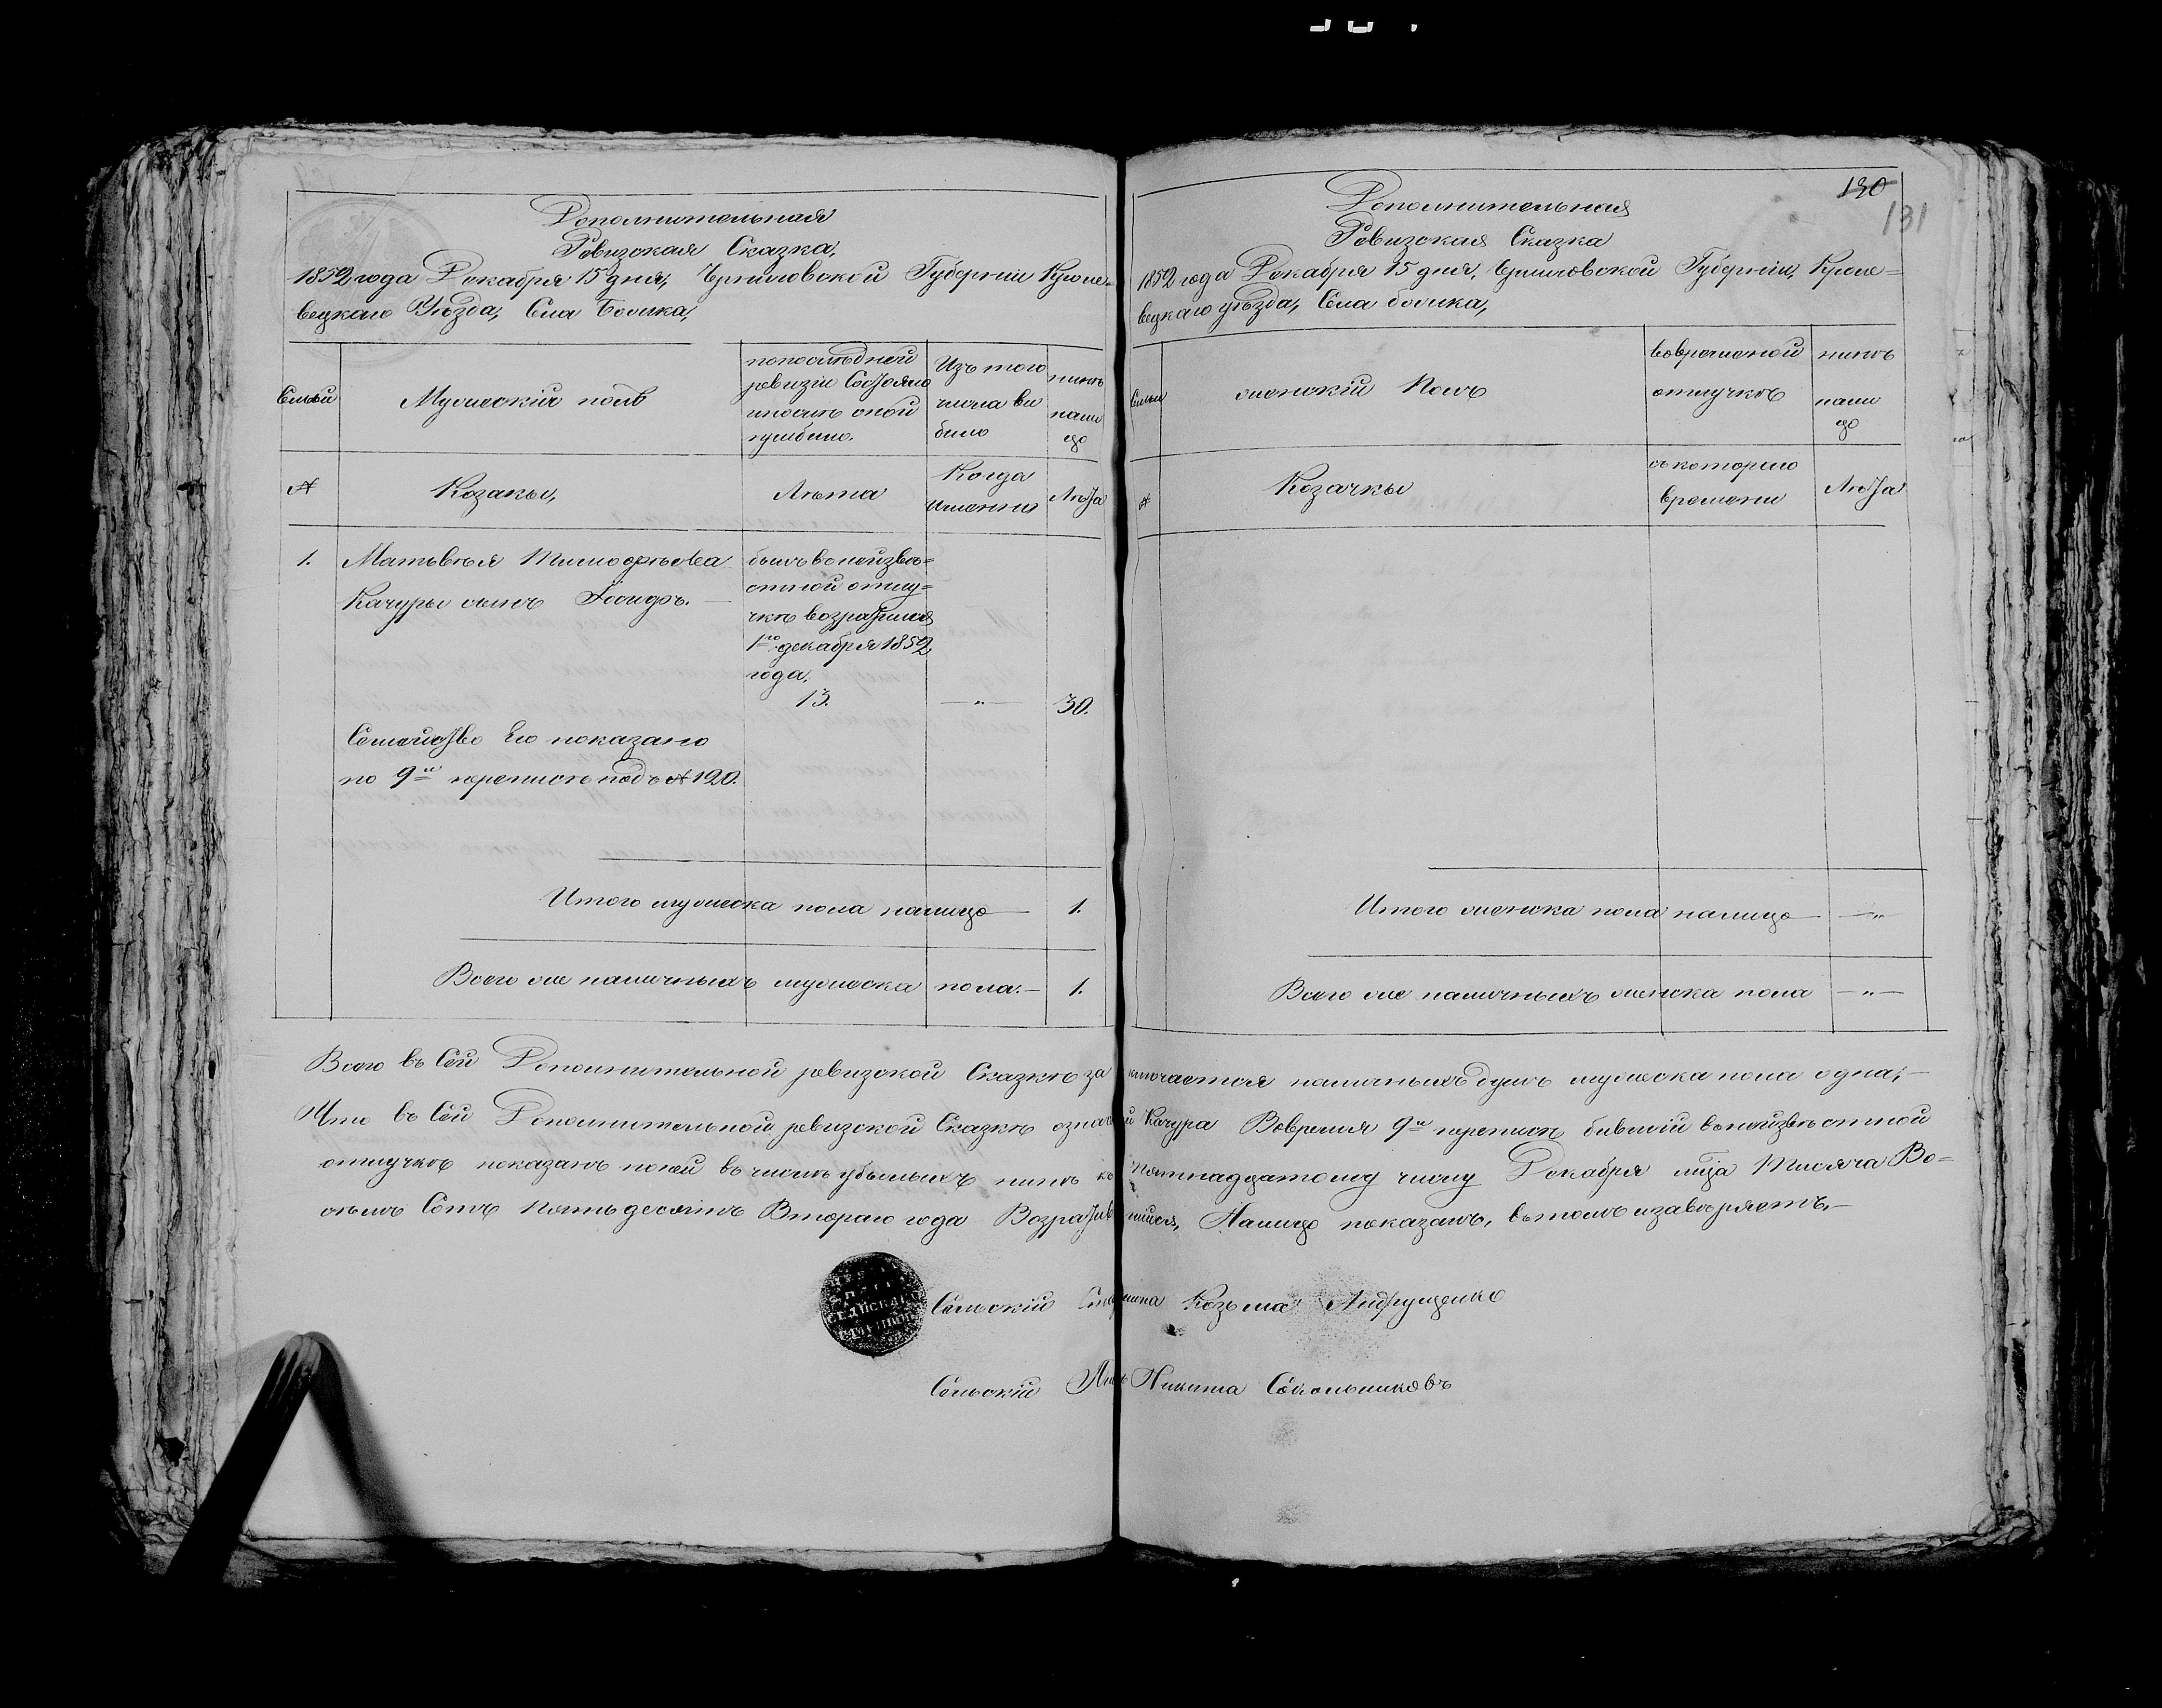 Дополнительная
Ревизская Сказка,
1852 года Декабря 15 дня, Черниговской Губернии Кроле=
вецкаго Уѣзда, Села Божика,
Семьи
Мужескій полъ
попослѣдней
ревизіи Состояло
ипослѣ оной
прибыло.
Изъ того
числа вы
было
нынѣ
нали
цо
№
Козаки,
Лѣта
Когда
именно
Лѣта
1.
Матвѣя Тимофѣева
Качуры сынъ Іосифъ. —
былъ вонеизвѣ=
стной отлу=
чкѣ возратился
1го декабря 1852
года.
13.
— „ —
30.
Семейство Его показано
по 9й переписѣ подъ № 120.
Итого мужеска пола налицо — 1.
Всего же наличныхъ мужеска пола. — 1.
130
131
Дополнительная
Ревизская Сказка
1852 года Декабря 15 дня, Черниговской Губерніи, Кроле=
вецкаго уѣзда, Села божика,
Семьи
женскій Полъ
вовременой
отлучкѣ
нынѣ
нали
цо
№
Козачки
съ котораго
времени
Лѣта
Итого женска пола налицо — „ —
Всего же наличныхъ женска пола — „ —
Всего въ Сей Дополнительной ревизской Сказкѣ заключается наличныхъ душъ мужеска пола одна, —
Что въ Сей Дополнительной ревизской Сказкѣ Качура Вовремя 9й переписѣ бывшій вонеизвѣстной
отлучкѣ показанъ поней въ числѣ убылыхъ нынѣ къ пятнадцатому числу Декабря мца Тысяча Во=
сѣмъ Сотъ Пятьдесятъ Втораго года Возратившійся, Налицо показанъ, вътомъ изавѣряетъ. —
Сельскій Старшина Козьма Андрущенко
Сельскій Никита Сокольниковъ